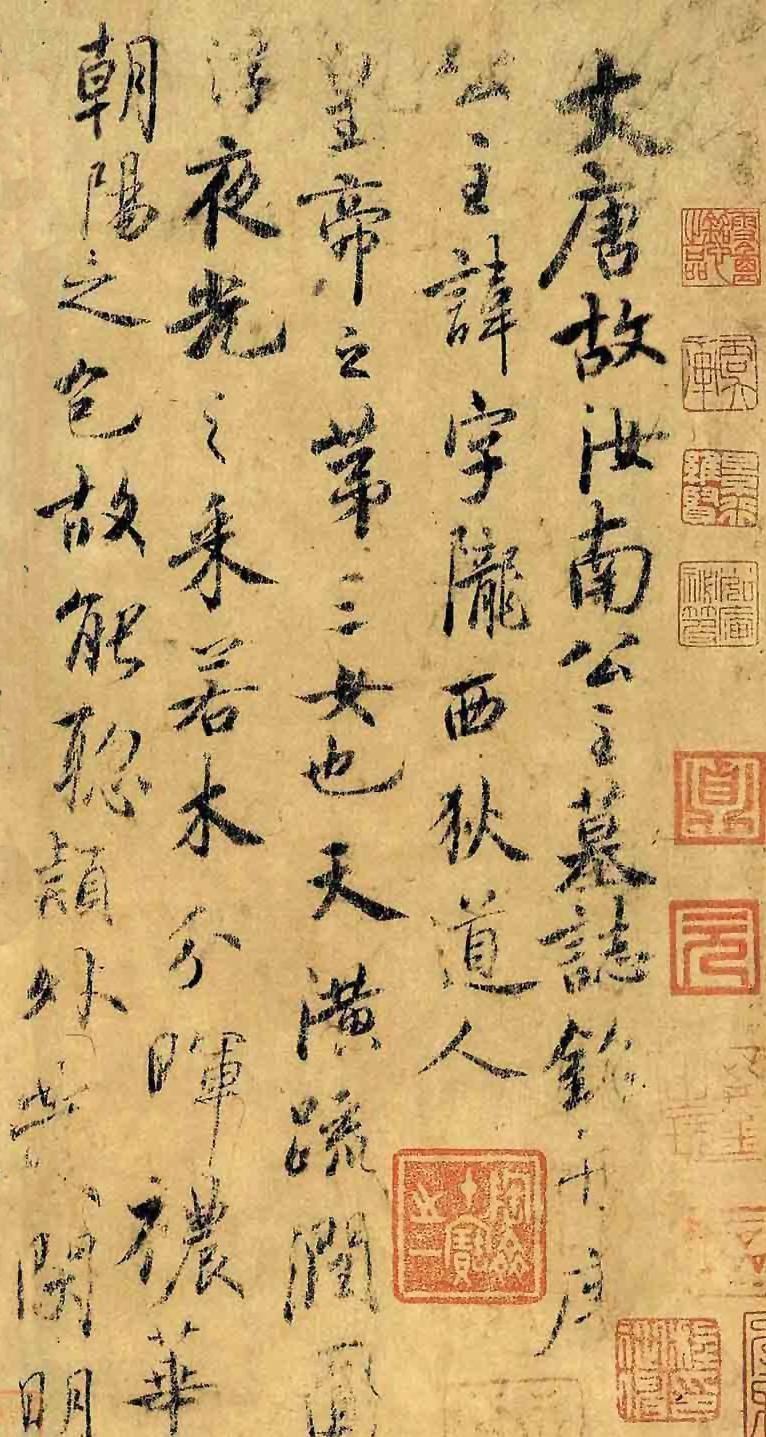 大唐故汝南公主墓誌銘并序
公主諱字隴西狄道人
皇帝之第三女也天潢疏潤圓
浮夜光之采若木分暉襛華
朝陽之色故能聰穎外發閑明